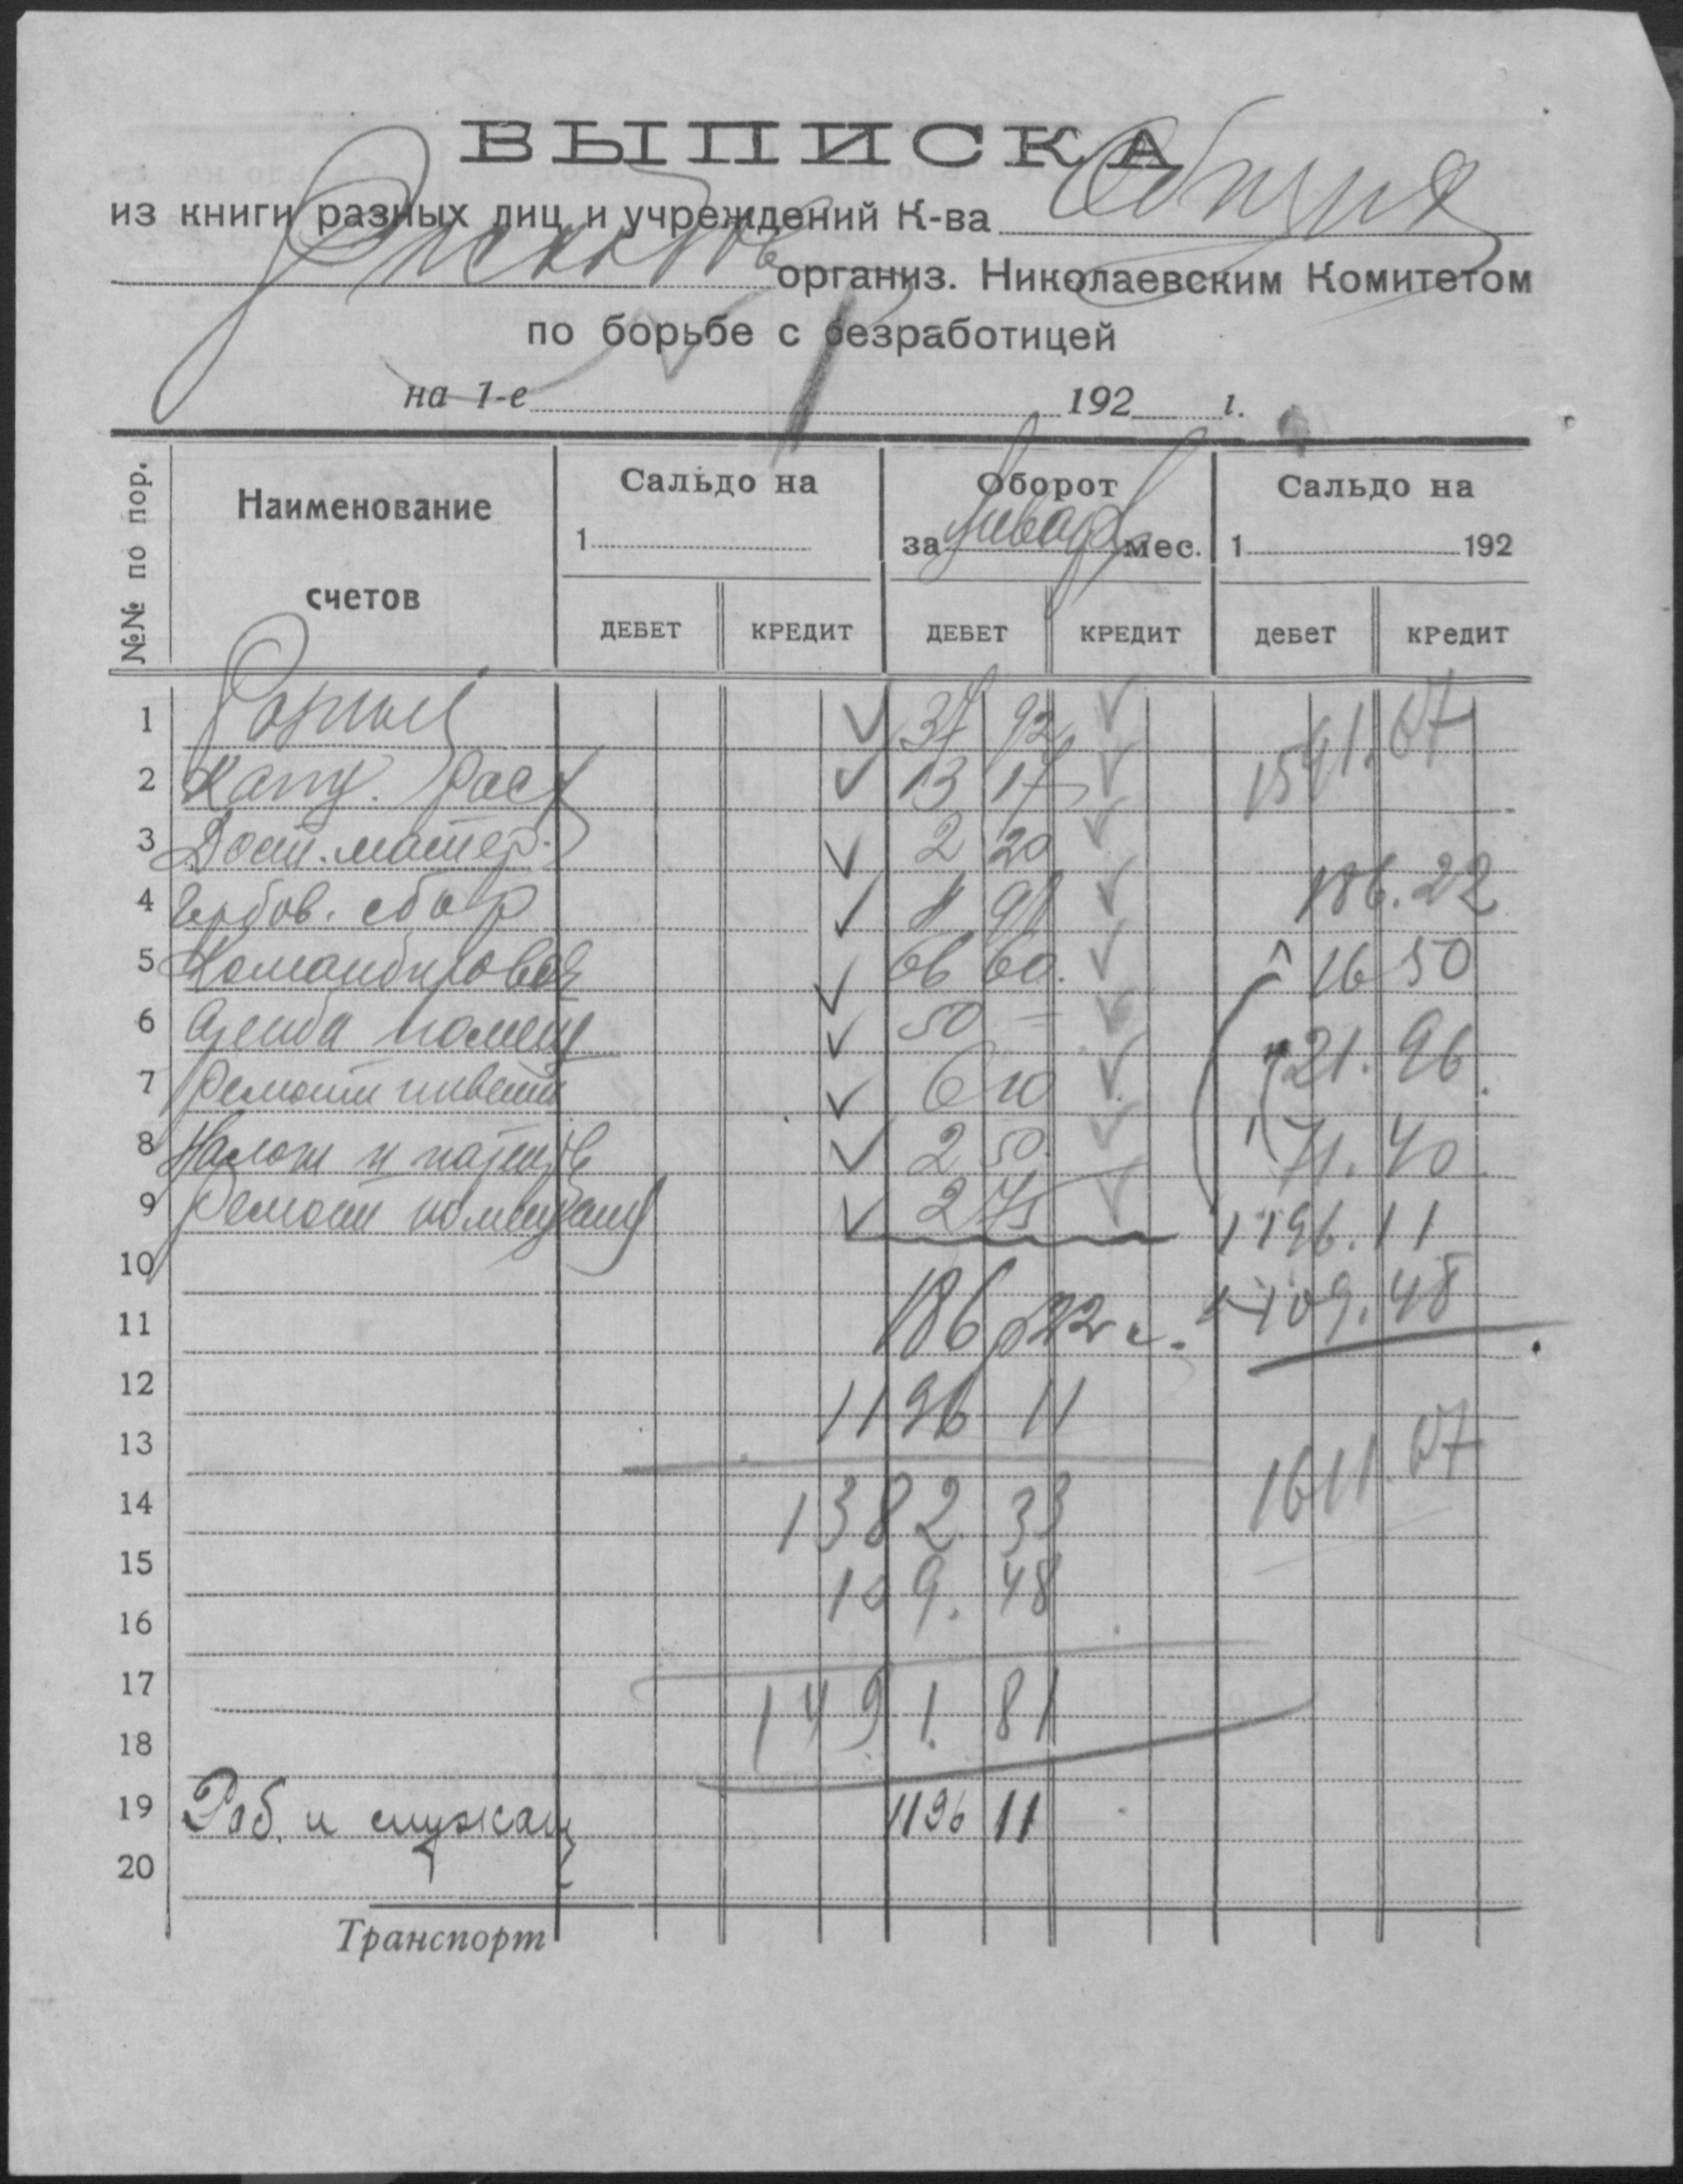 ВЫПИСКА
из книги разных лиц и учреждений К-ва Общия
организ. Николаевским Комитетом
по борьбе с безработицей
на 1-е 192 г.
№№ по пор.
Наименование счетов
Сальдо на 1
Оборот за январь мес.
Сальдо на 1 192
ДЕБЕТ КРЕДИТ ДЕБЕТ КРЕДИТ дебет кредит
1 37 92 1591.07
2 Канц. Расх 13 17
3 Дост. матер. 2 20
4 Гербов. сбор 4 98 186.22
5 Командировоч 66 60. 16 50
6 Аренда помещ 50 = " 21.96
7 Ремонт инвент 6 10
8 Налоги и патенты 2 50. " 71.40
9 Ремонт помещения 2 75 1196.11
10 109.48
11 186 22
12 1196 11
13
14 1382. 33 1611.07
15 109. 48
16
17 1491. 81
18
19 Раб. и служащ 1196 11
20
Транспорт